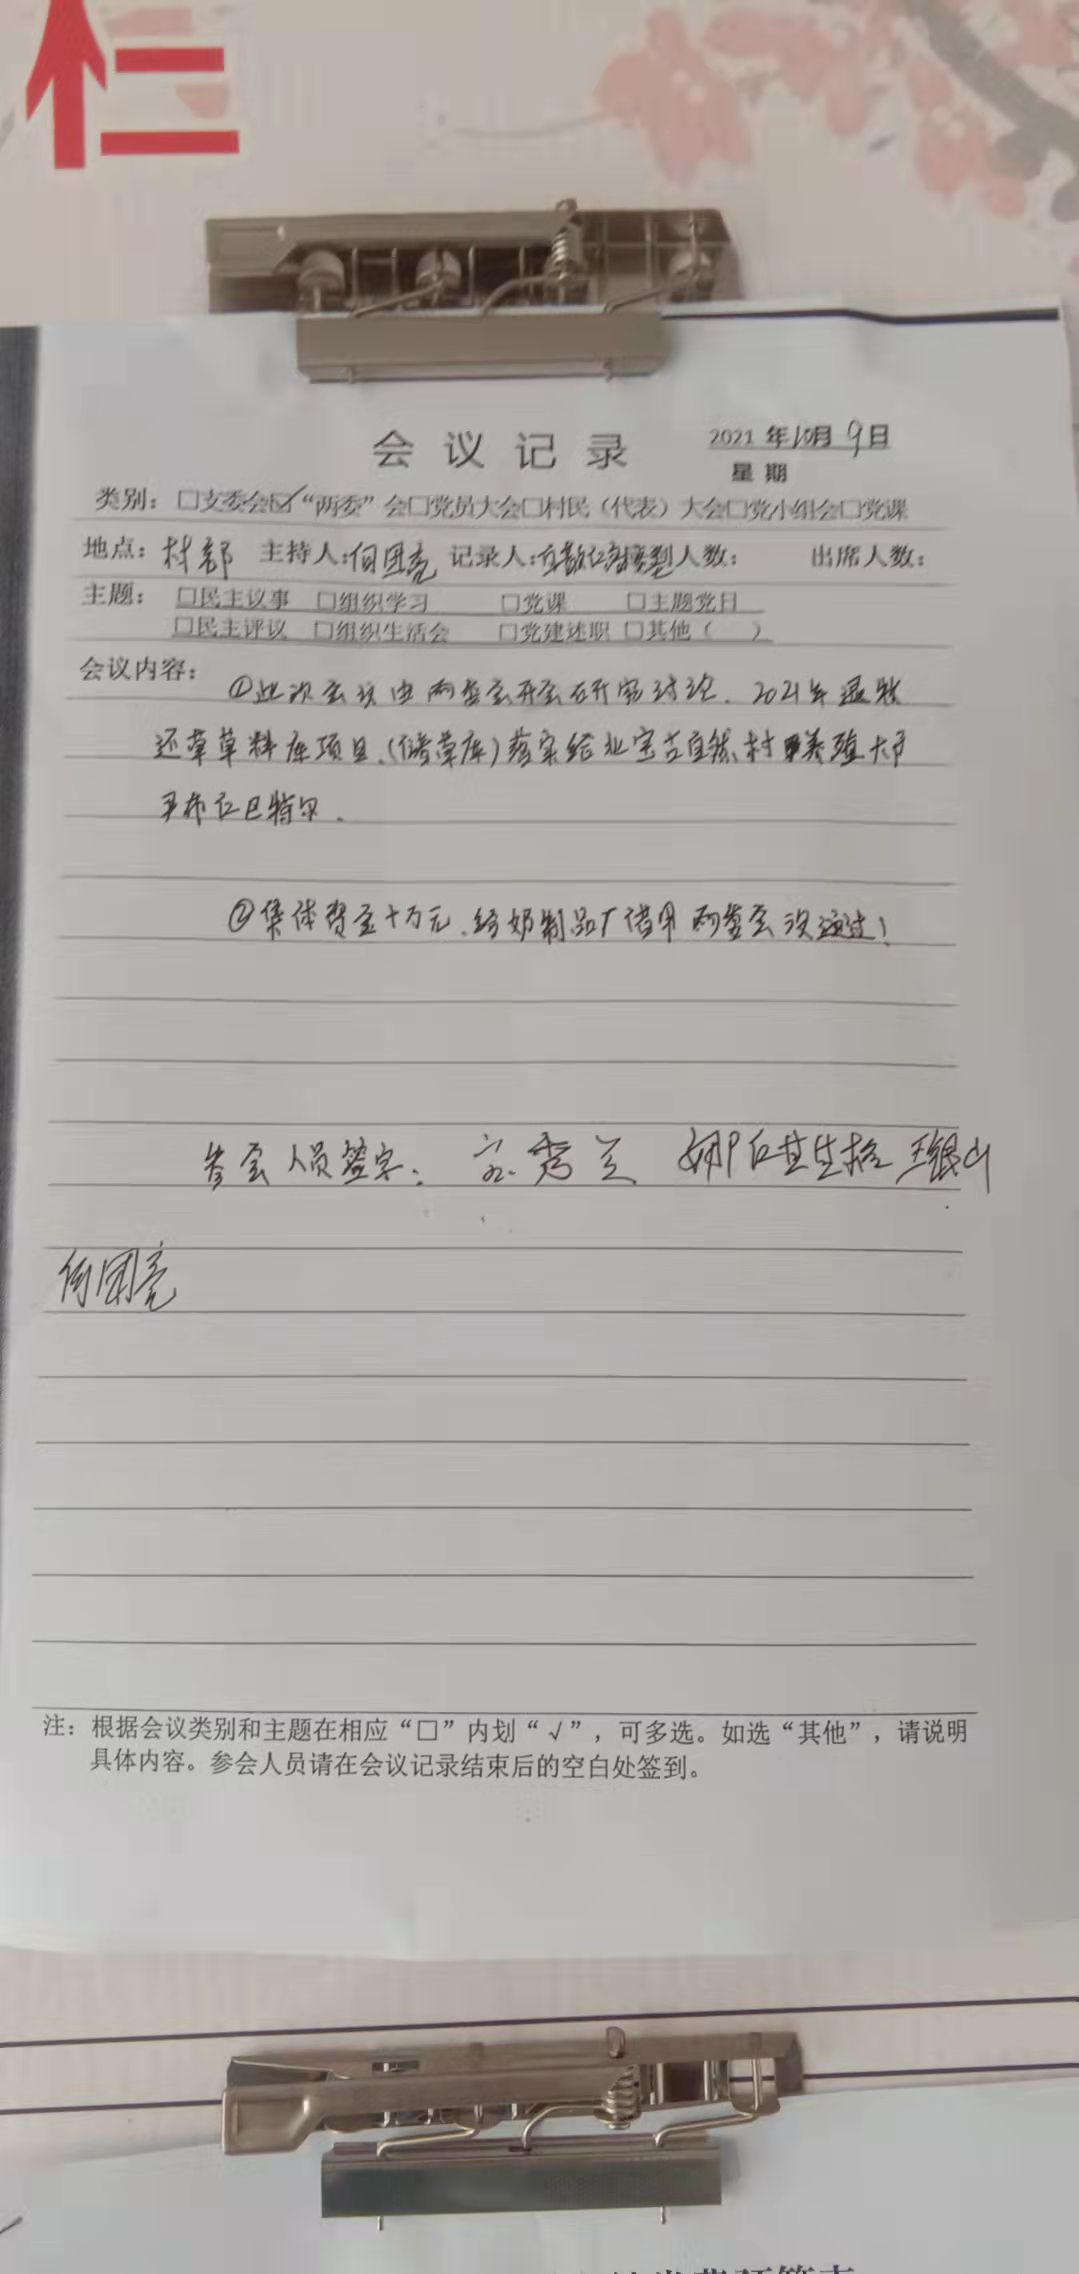 栏
会议记录
2021年10月9日
星期
类别：□支委会☑“两委”会□党员大会□村民（代表）大会□党小组会□党课
地点：村部 主持人：何团亮 记录人： 人数： 出席人数：
主题：□民主议事 □组织学习 □党课 □主题党日
□民主评议 □组织生活会 □党建述职 □其他（ ）
会议内容：
①此次会议由两委会开会研究讨论．2021年退牧
还草草料库项目．（储草库）落实给 宝古自然村 养殖大户
布仁巴特尔．
②集体资金十万元．给奶制品厂借用 两委会议通过！
参会人员签字： 秀兰 娜仁其其格 王银山
何团亮
注：根据会议类别和主题在相应“□”内划“√”，可多选。如选“其他”，请说明
具体内容。参会人员请在会议记录结束后的空白处签到。